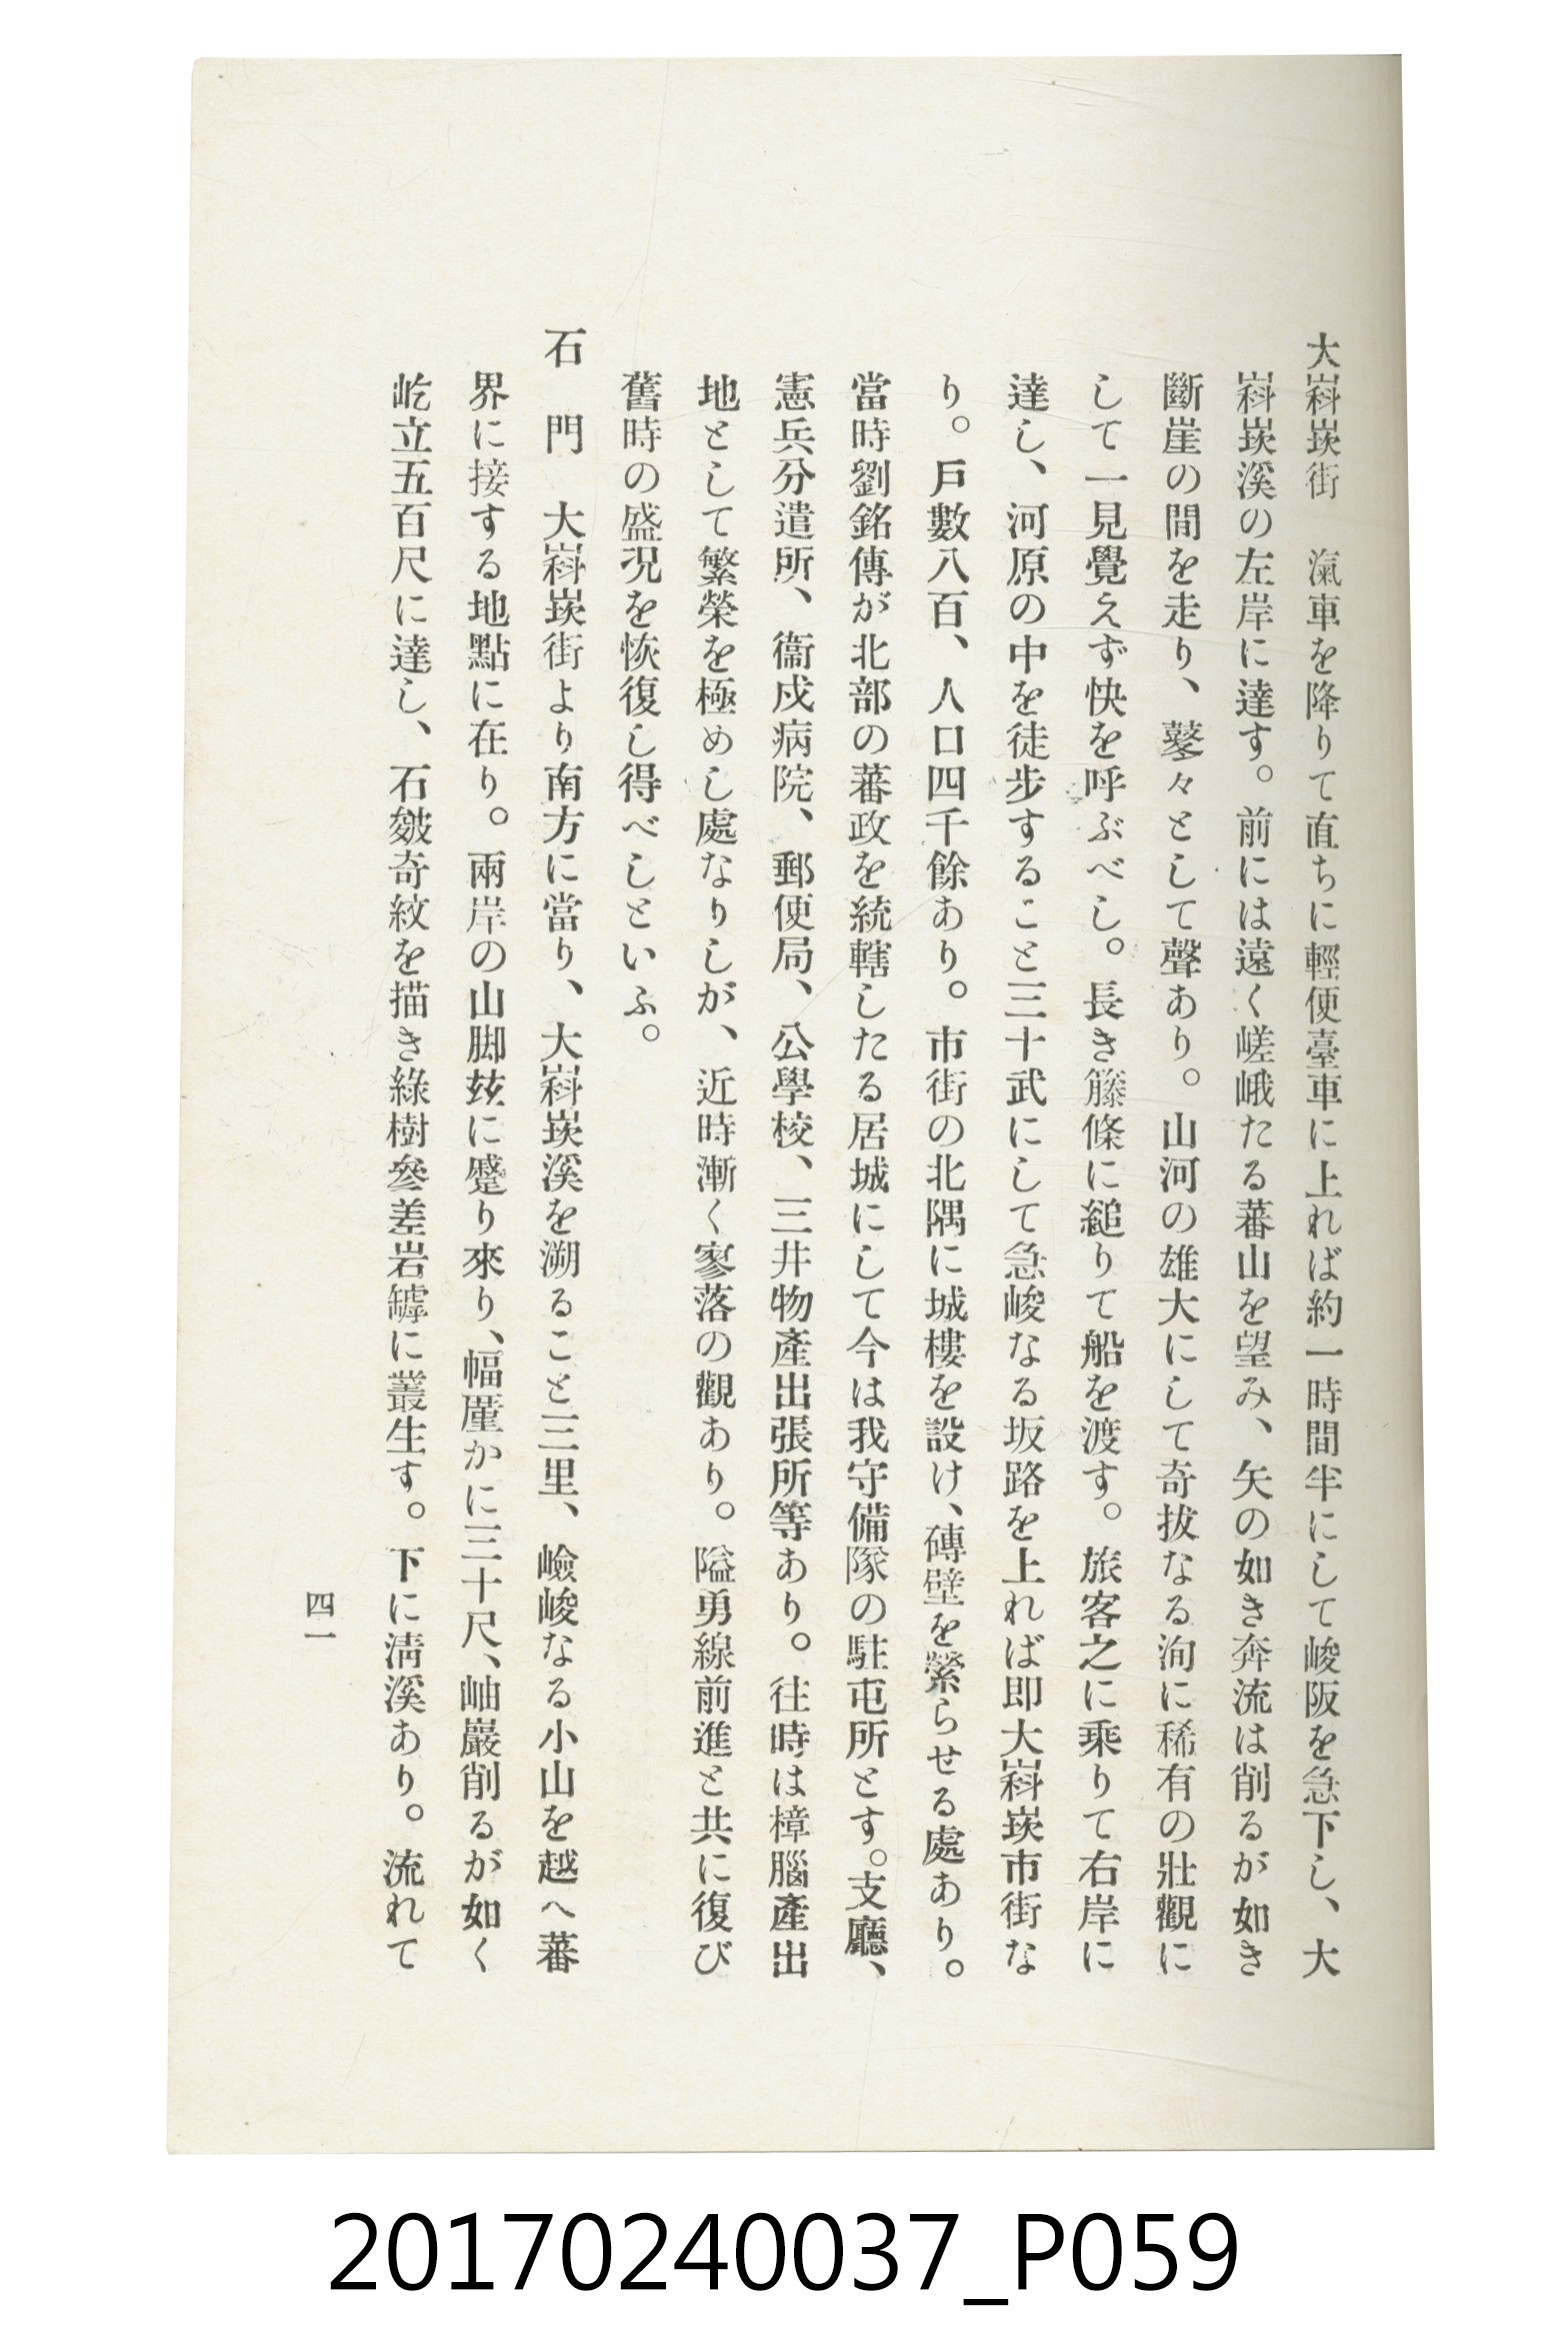 大嵙崁街　滊車を降りて直ちに輕便臺車に上れば約一時間半にして峻阪を急下し、大
嵙崁溪の左岸に達す。前には遠く嵯峨たる蕃山を望み、矢の如き奔流は削るが如き
斷崖の間を走り、鼕々として聲あり。山河の雄大にして奇拔なる洵に稀有の壯觀に
して一見覺えず快を呼ぶべし。長き籐條に縋りて船を渡す。旅客之に乘りて右岸に
達し、河原の中を徒步すること三十武にして急峻なる坂路を上れば即大嵙崁市街な
り。戶數八百、人口四千餘あり。市街の北隅に城樓を設け、磚壁を縈らせる處あり。
當時劉銘傳が北部の蕃政を統轄したる居城にして今は我守備隊の駐屯所とす。支廳、
憲兵分遣所、衞戍病院、郵便局、公學校、三井物產出張所等あり。往時は樟腦產出
地として繁榮を極めし處なりしが、近時漸く寥落の觀あり。隘勇線前進と共に復び
舊時の盛况を恢復し得べしといふ。
石　門　大嵙崁街より南方に當り、大嵙崁溪を溯ること三里、嶮峻なる小山を越へ蕃
界に接する地點に在り。兩岸の山脚玆に蹙り來り、幅厪かに三十尺、岫巖削るが如く
屹立五百尺に達し、石皴奇紋を描き綠樹參差岩罅に叢生す。下に淸溪あり。流れて
四一
20170240037_P059